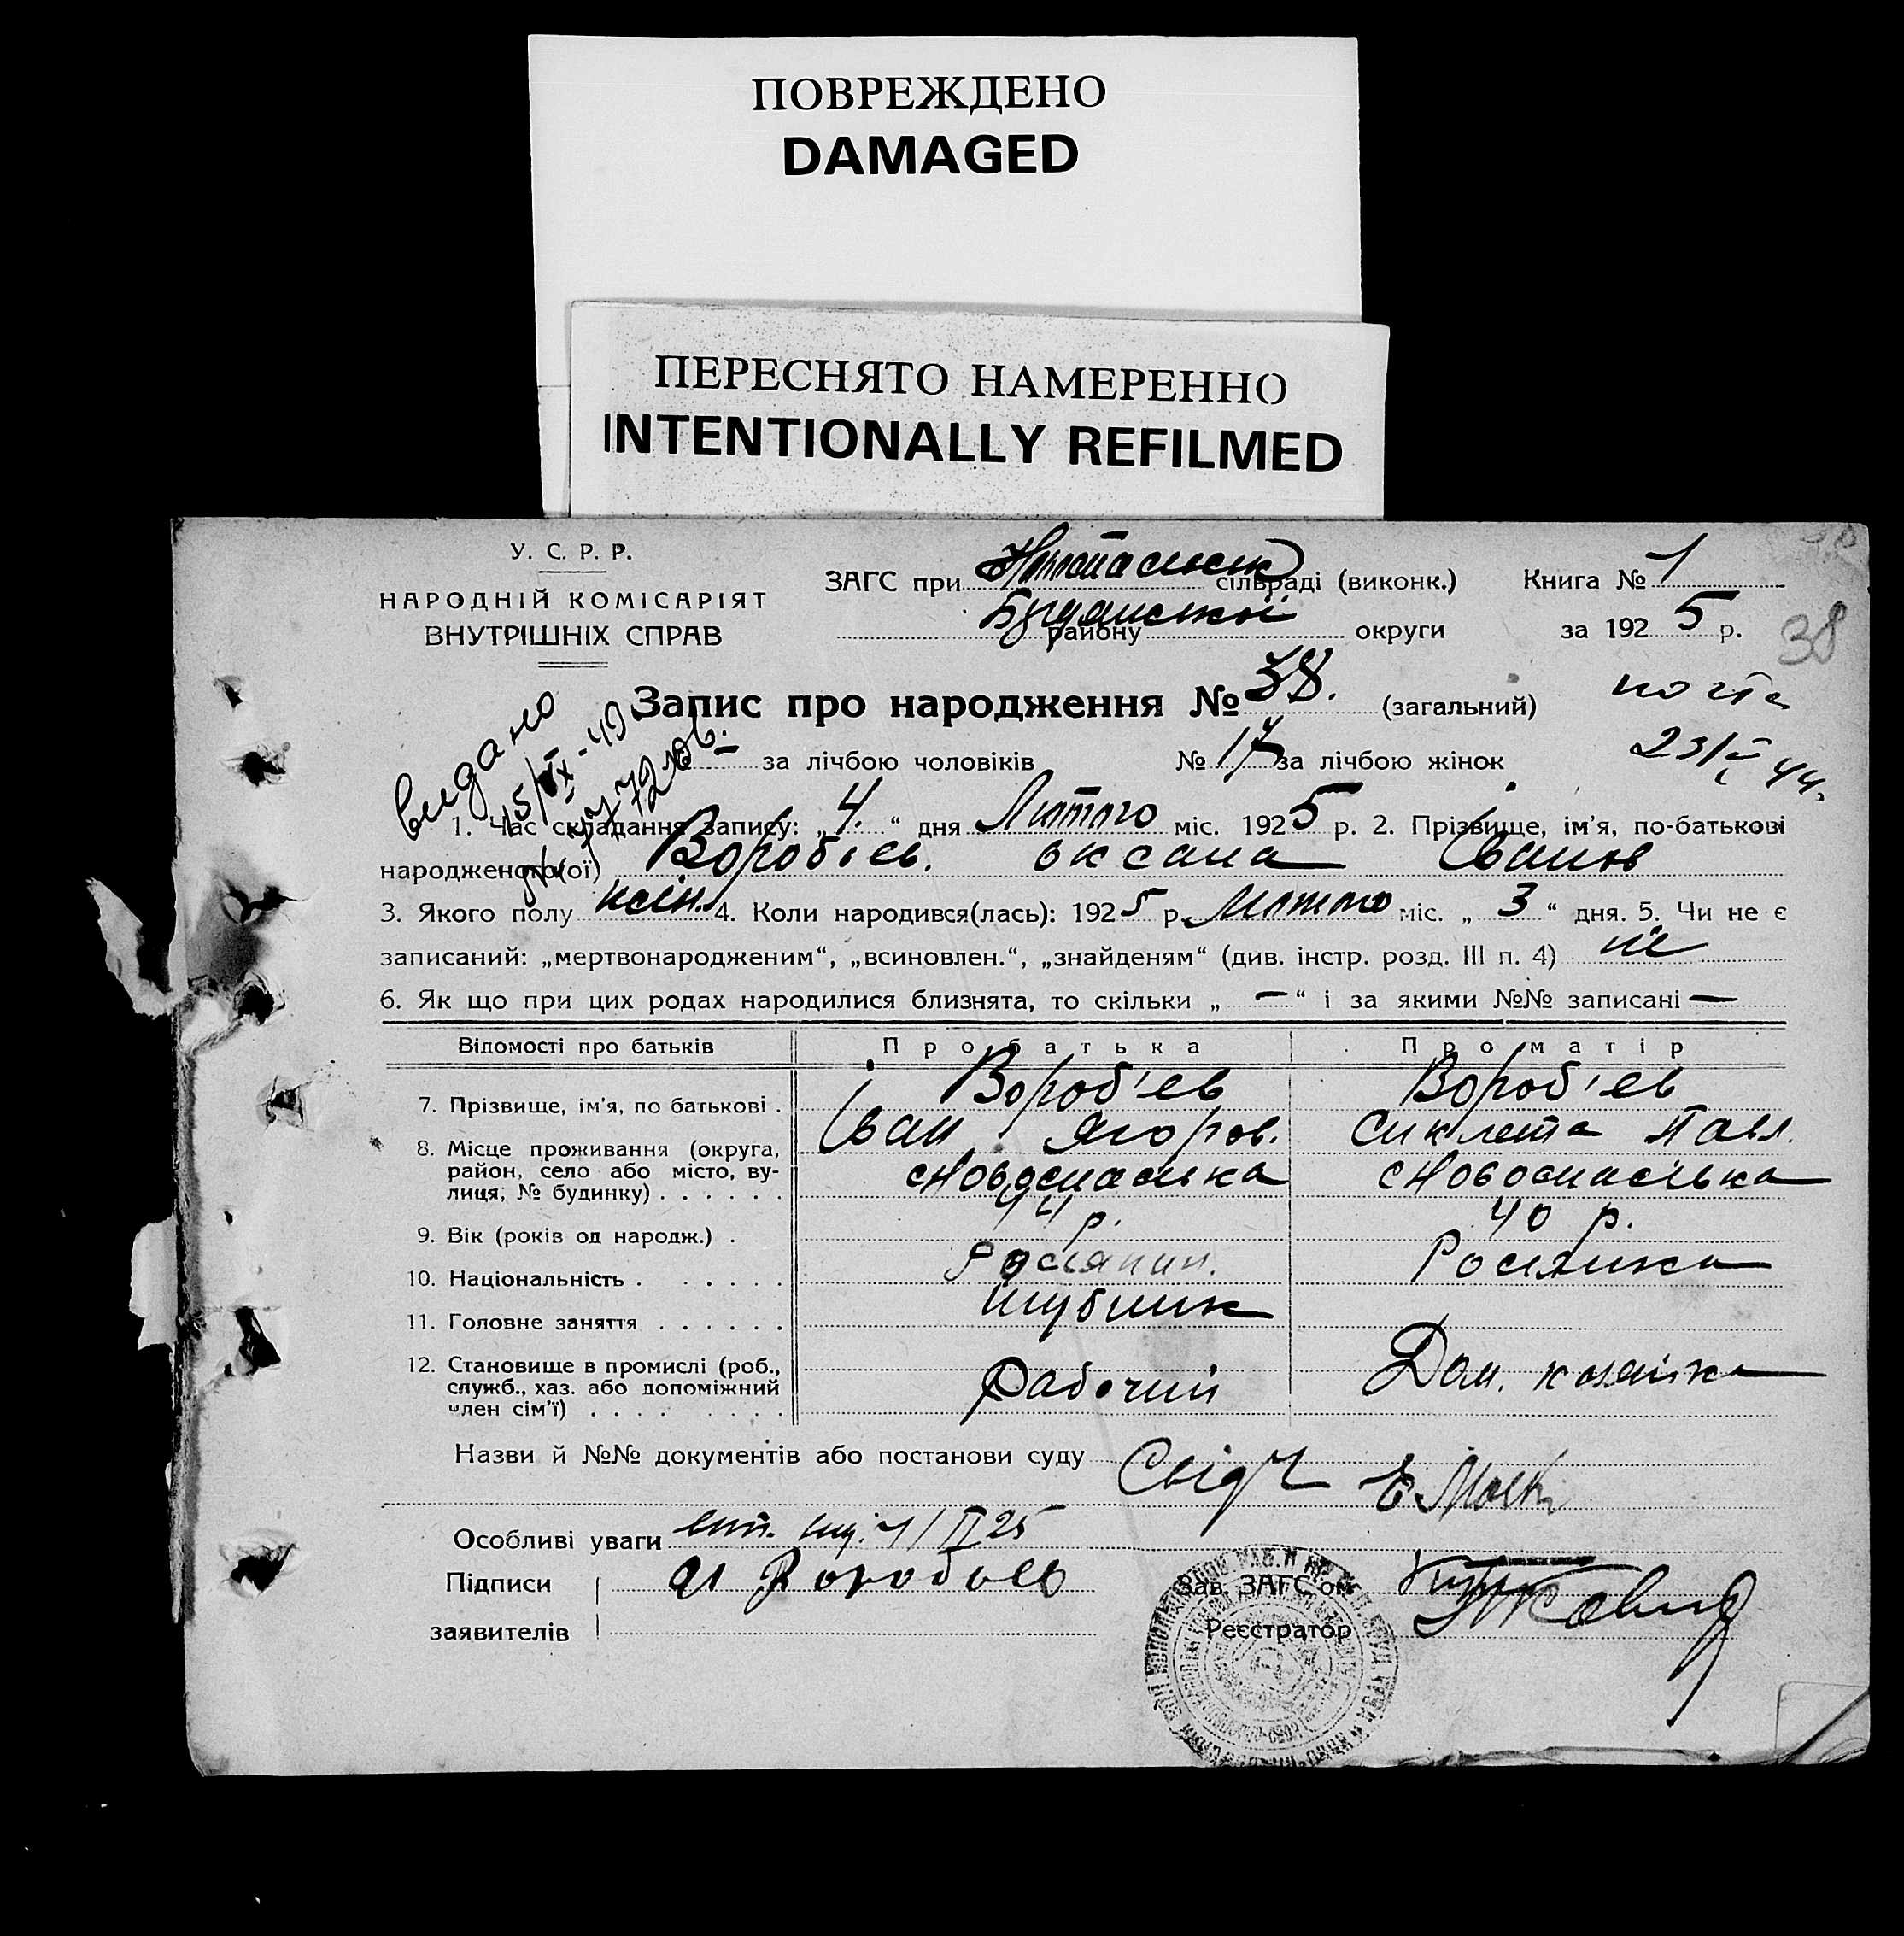 ПОВРЕЖДЕНО
DAMAGED
ПЕРЕСНЯТО НАМЕРЕННО
INTENTIONALLY REFILMED
У. С. Р. Р.
НАРОДНІЙ КОМІСАРІЯТ
ВНУТРІШНІХ СПРАВ
ЗАГС при сільраді (виконк.) Книга № 1
району округи за 1925 р.
38
Запис про народження № 38. (загальний)
видано
— за лічбою чоловіків № 17 за лічбою жінок
1. Час складання запису: „4.“ дня Лютого міс. 1925 р. 2. Прізвище, ім'я, по-батькові
народженого(ої) Воробієв. Оксана Іванов
3. Якого полу жін. 4. Коли народився(лась): 1925 р. Лютого міс. „3“ дня. 5. Чи не є
записаний: „мертвонародженим“, „всиновлен.“, „знайденям“ (див. інстр. розд. III п. 4) ні
6. Як що при цих родах народилися близнята, то скільки „—“ і за якими №№ записані —
Відомості про батьків Про батька Про матір
7. Прізвище, ім'я, по батькові . Вороб'ев Вороб'ев
Іван Ягоров. Павл.
8. Місце проживання (округа, район, село або місто, вулиця, № будинку) . . . . . .
9. Вік (років од народж.) . 44 р. 40 р.
10. Національність . . . . . . Росіянин. Росіянка
11. Головне заняття . . . . . .
12. Становище в промислі (роб., служб., хаз. або допоміжний член сім'ї) . . . . Рабочий Дом. хозяйка
Назви й №№ документів або постанови суду Свідч
Особливі уваги
Підписи
заявителів
Зав. ЗАГС'ом
Реєстратор